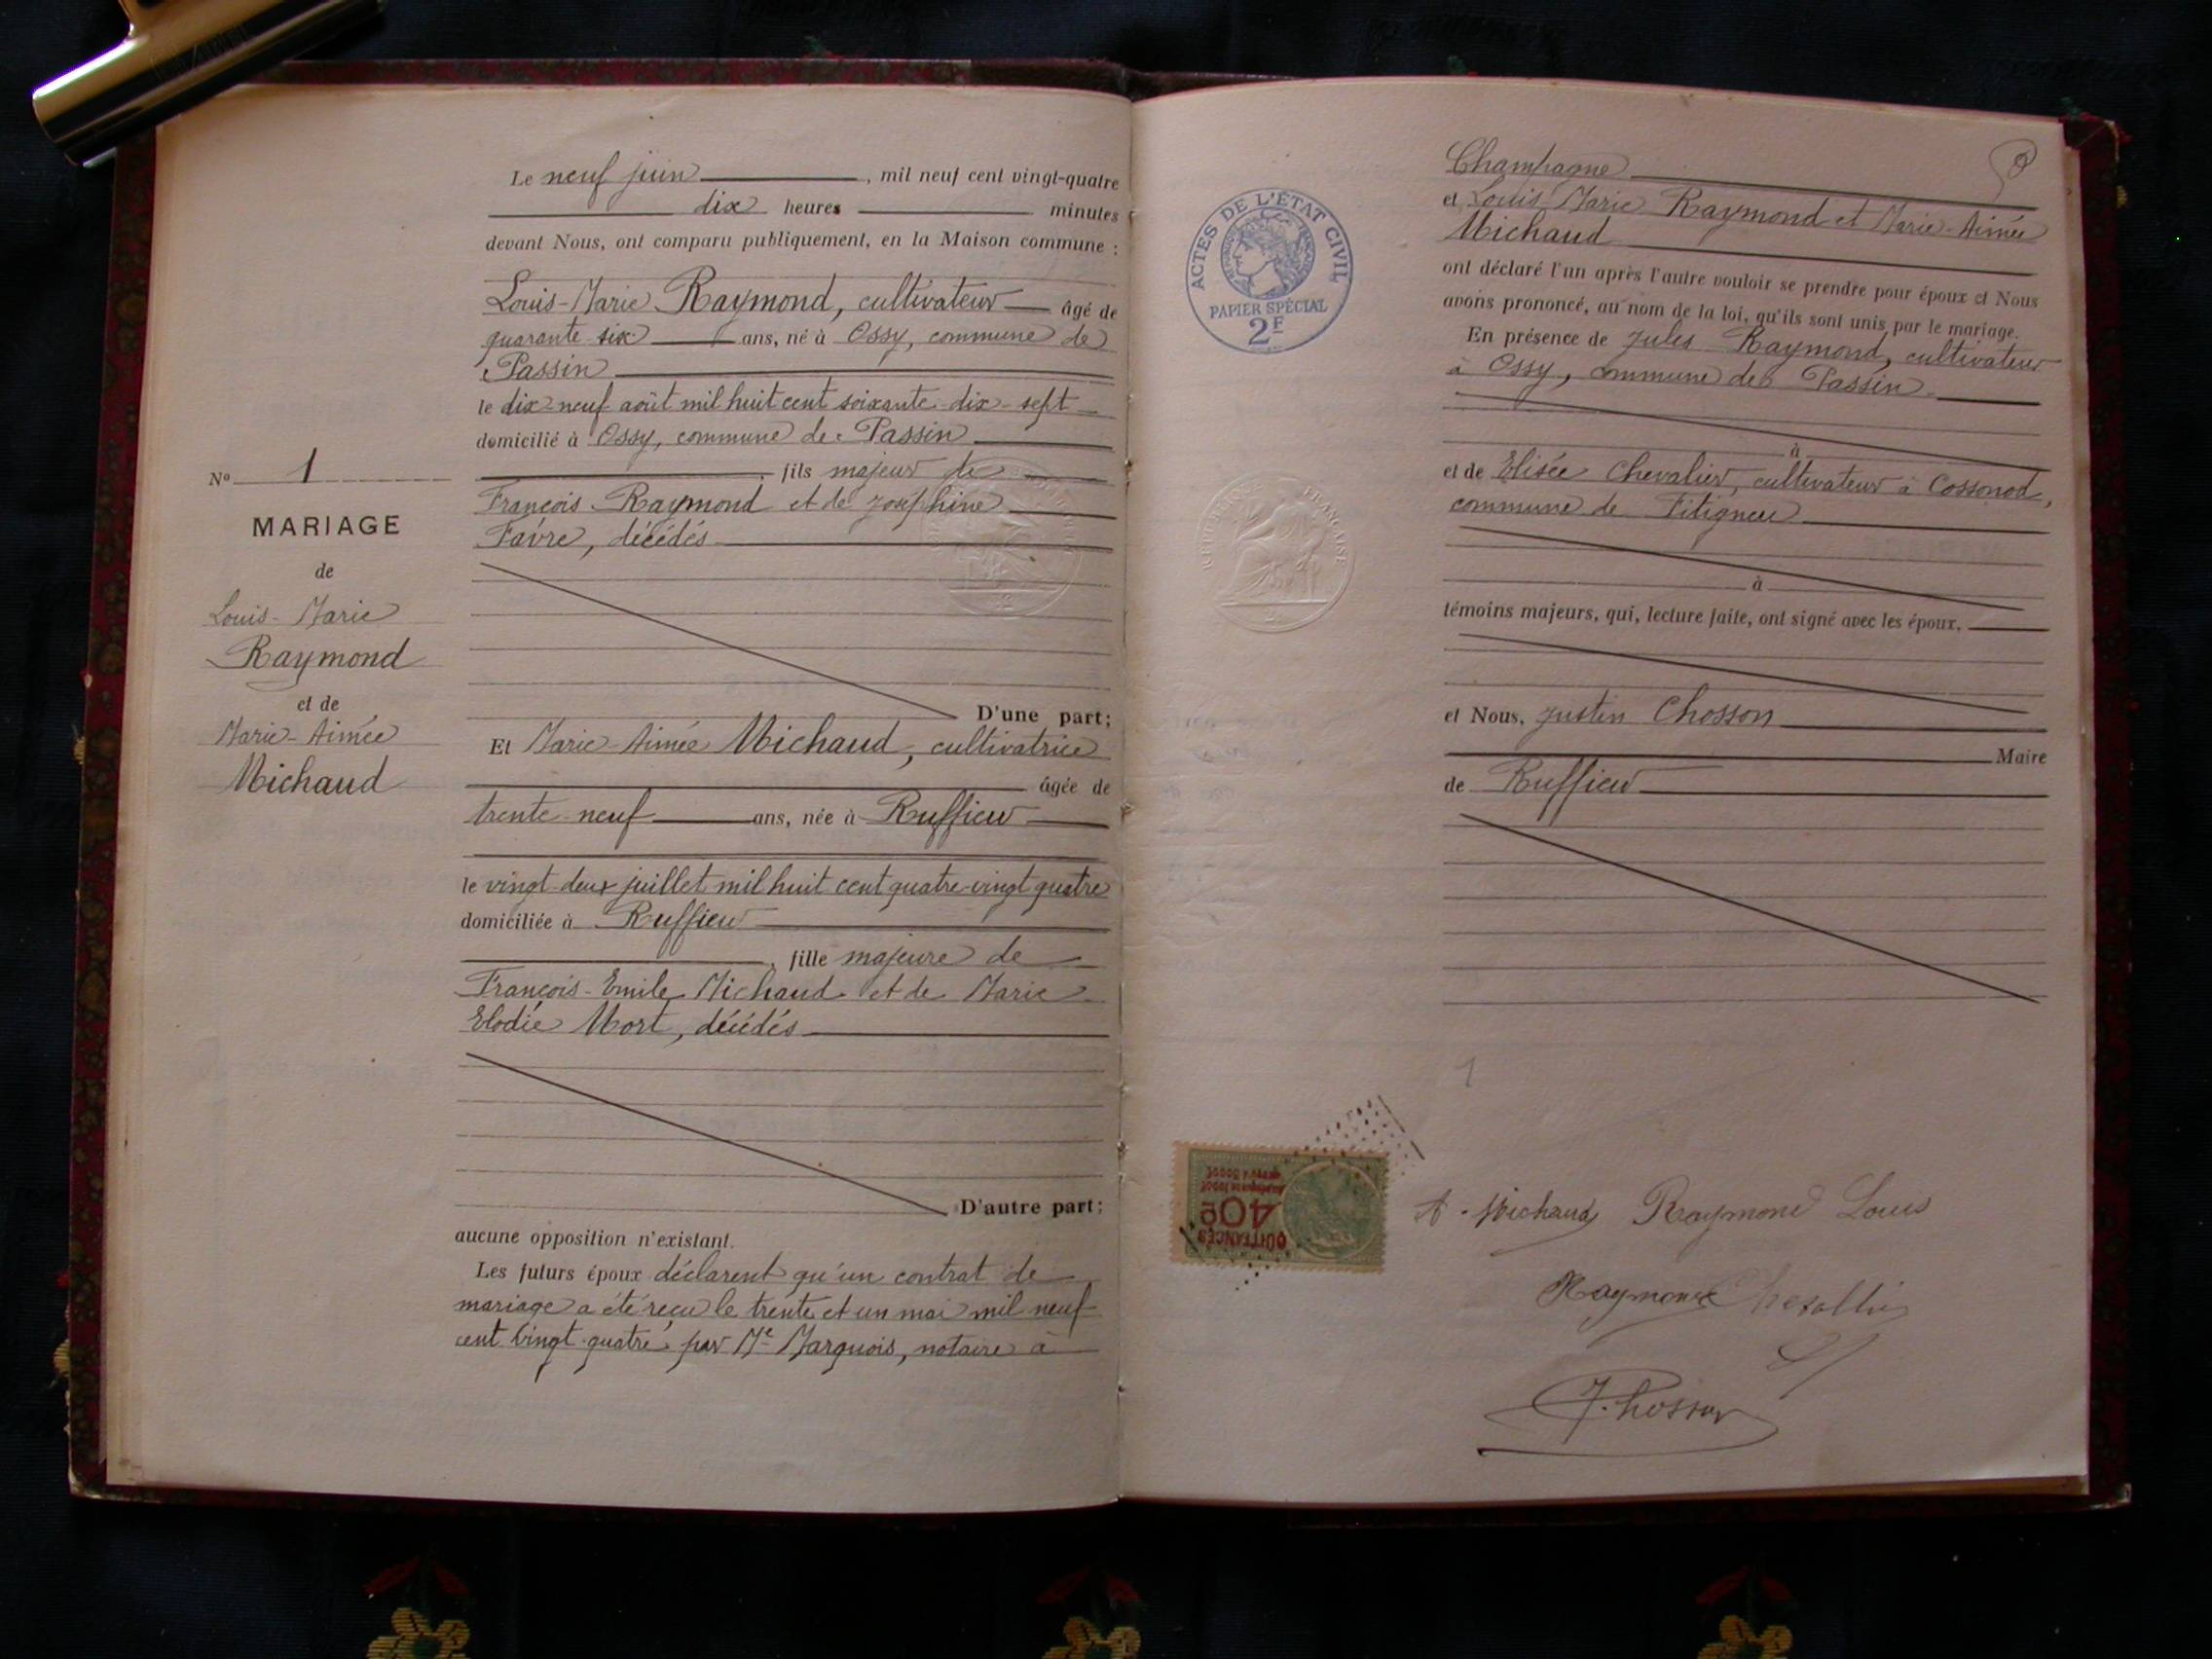 Le neuf juin, mil neuf cent vingt-quatre
dix heures minutes
devant Nous, ont comparu publiquement, en la Maison commune :
Louis-Marie Raymond, cultivateur âgé de
quarante six ans, né à Ossy, commune de
Passin
le dix-neuf août mil huit cent soixante-dix-sept
domicilié à Ossy, commune de Passin
, fils majeur de
François Raymond et de Joséphine
Favre, décédés
D'une part;
Et Marie-Aimée Michaud, cultivatrice
âgée de
trente-neuf ans, née à Ruffieu
le vingt-deux juillet mil huit cent quatre-vingt quatre
domiciliée à Ruffieu
, fille majeure de
François-Emile Michaud et de Marie
Elodie Mort, décédés
D'autre part;
aucune opposition n'existant.
Les futurs époux déclarent qu'un contrat de
mariage a été reçu le trente et un mai mil neuf
cent vingt-quatre par Me Marquois, notaire à
No 1
MARIAGE
de
Louis-Marie
Raymond
et de
Marie-Aimée
Michaud
Champagne
et Louis Marie Raymond et Marie-Aimée
Michaud
ont déclaré l'un après l'autre vouloir se prendre pour époux et Nous
avons prononcé, au nom de la loi, qu'ils sont unis par le mariage.
En présence de Jules Raymond, cultivateur
à Ossy, commune de Passin
à
et de Elisée Chevalier, cultivateur à Cossonod,
commune de Fitignieu
à
témoins majeurs, qui, lecture faite, ont signé avec les époux.
et Nous, Justin Chosson
Maire
de Ruffieu
ACTES DE L'ÉTAT CIVIL
RÉPUBLIQUE FRANÇAISE
PAPIER SPÉCIAL
2F
RÉPUBLIQUE FRANÇAISE
2
1
QUITTANCES
40c
A. Michaud Raymond Louis
Raymond
J. Chosson